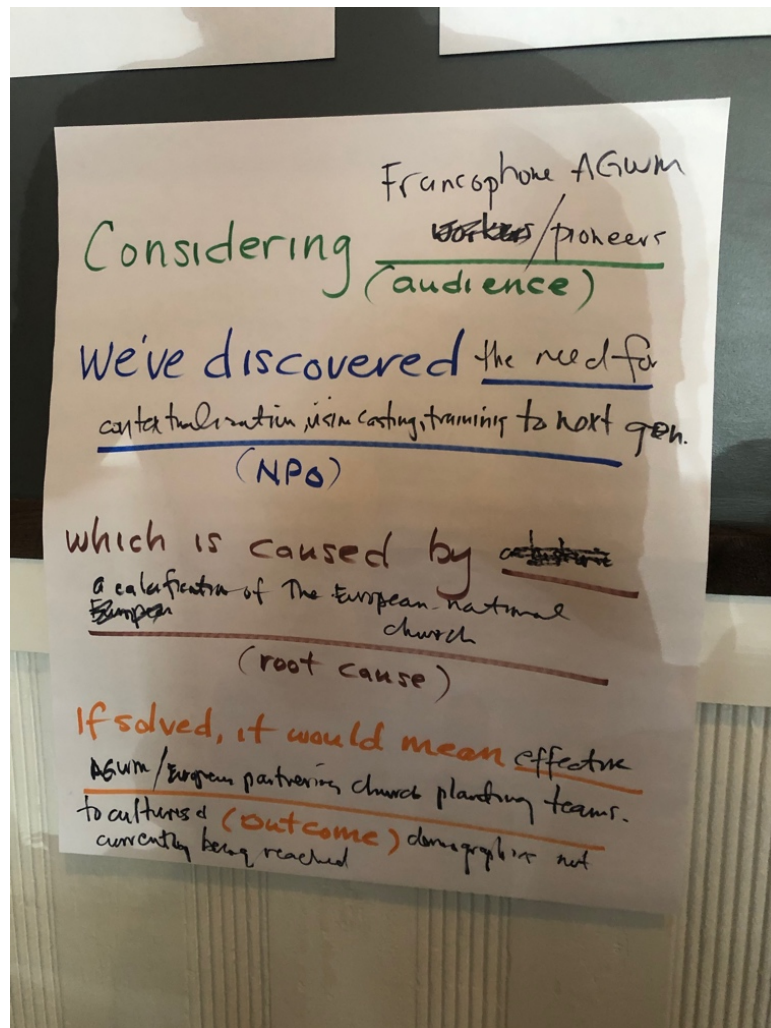 Francophone AGWM
Considering workers/pioneers
(audience)
We've discovered the need for
contextualization, vision casting, training to next gen.
(NPO)
which is caused by
a calcification of The European national
church
(root cause)
If solved, it would mean effective
AGWM/European partnering church planting teams.
to cultures & (outcome) demographics not
currently being reached